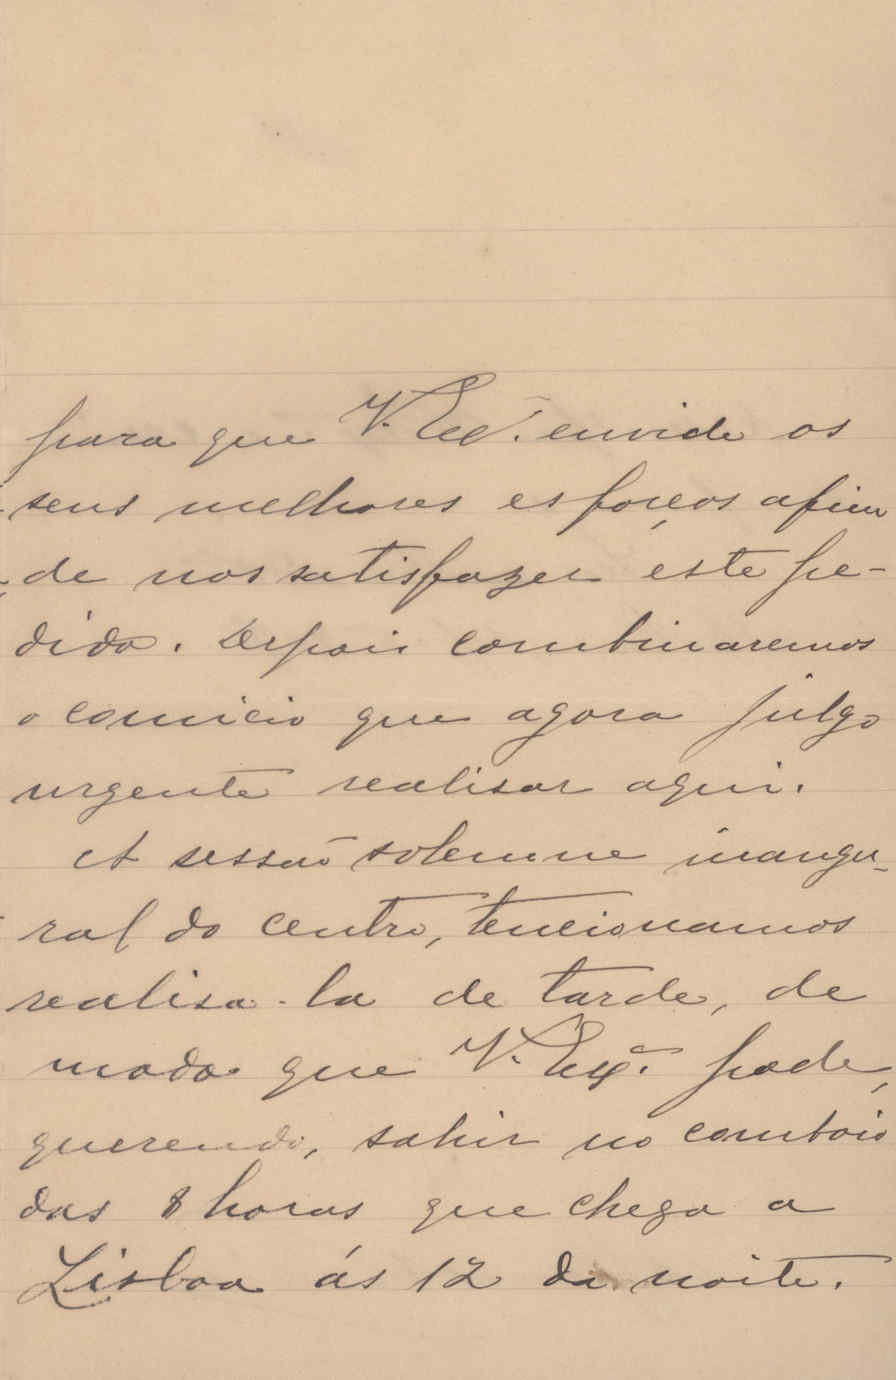 para que V. Ex.ª envide os
seus melhores esforços afim
de nos satisfazer éste pe-
dido. Depois combinaremos
o comicio que agora julgo
urgente realisar aqui.
A sessão solemne inaugu-
ral do centro, tencionamos
realisa-la de tarde, de
modo que V. Ex.ª pode,
querendo, sahir no comboio
das 8 horas que chega a
Lisboa ás 12 da noite.